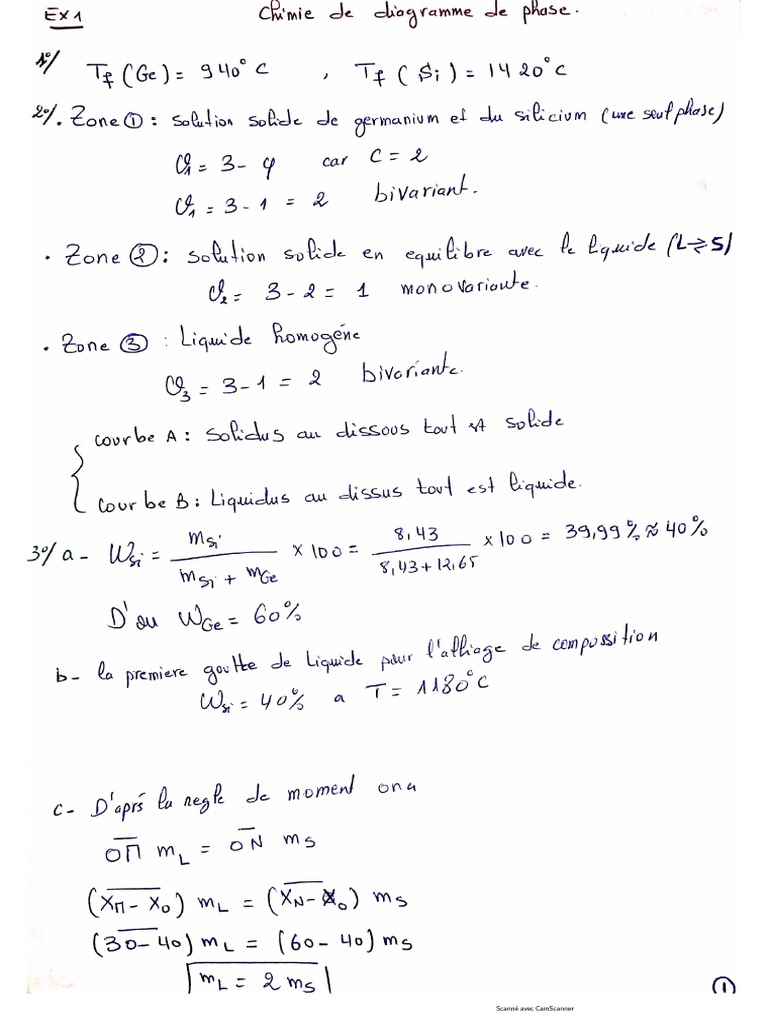 EX 1 Chimie de diagramme de phase.
1°/ Tf (Ge) = 940°C , Tf (Si) = 1420°C
2°/. Zone ① : solution solide de germanium et du silicium (une seul phase)
V1 = 3 - φ car C = 2
V1 = 3 - 1 = 2 bivariant.
. Zone ② : solution solide en equilibre avec le liquide (L⇌S)
V2 = 3 - 2 = 1 monovariante.
. Zone ③ : Liquide homogéne
V3 = 3 - 1 = 2 bivariante.
courbe A : Solidus au dissous tout st solide
courbe B : Liquidus au dissus tout est liquide.
3°/ a - Wsi = msi / (msi + mGe) × 100 = 8,43 / (8,43 + 12,65) × 100 = 39,99 % ≈ 40%
D'ou WGe = 60%
b - la premiere goutte de Liquide pour l'alliage de compossition
Wsi = 40% a T = 1180°C
c - D'aprś la regle de moment ona
OM mL = ON mS
(XM - X0) mL = (XN - X0) mS
(30 - 40) mL = (60 - 40) mS
mL = 2 mS
①
Scanné avec CamScanner